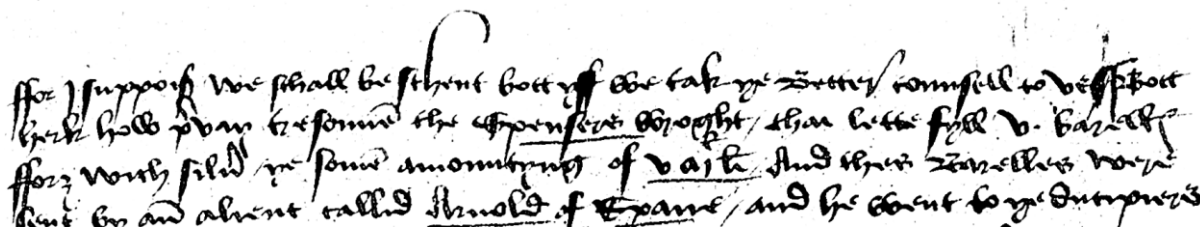 ffor I suppois we schall be schent bott yff we tak ye better counsell to vs / Bott
herk how pryvay tresonne the Spensers wroght / thai lette fyll v. barelles
with silver ye some amountyng of v M li And thes Barelles were
sent by an alient callid Arnold of Spane / and he went to ye